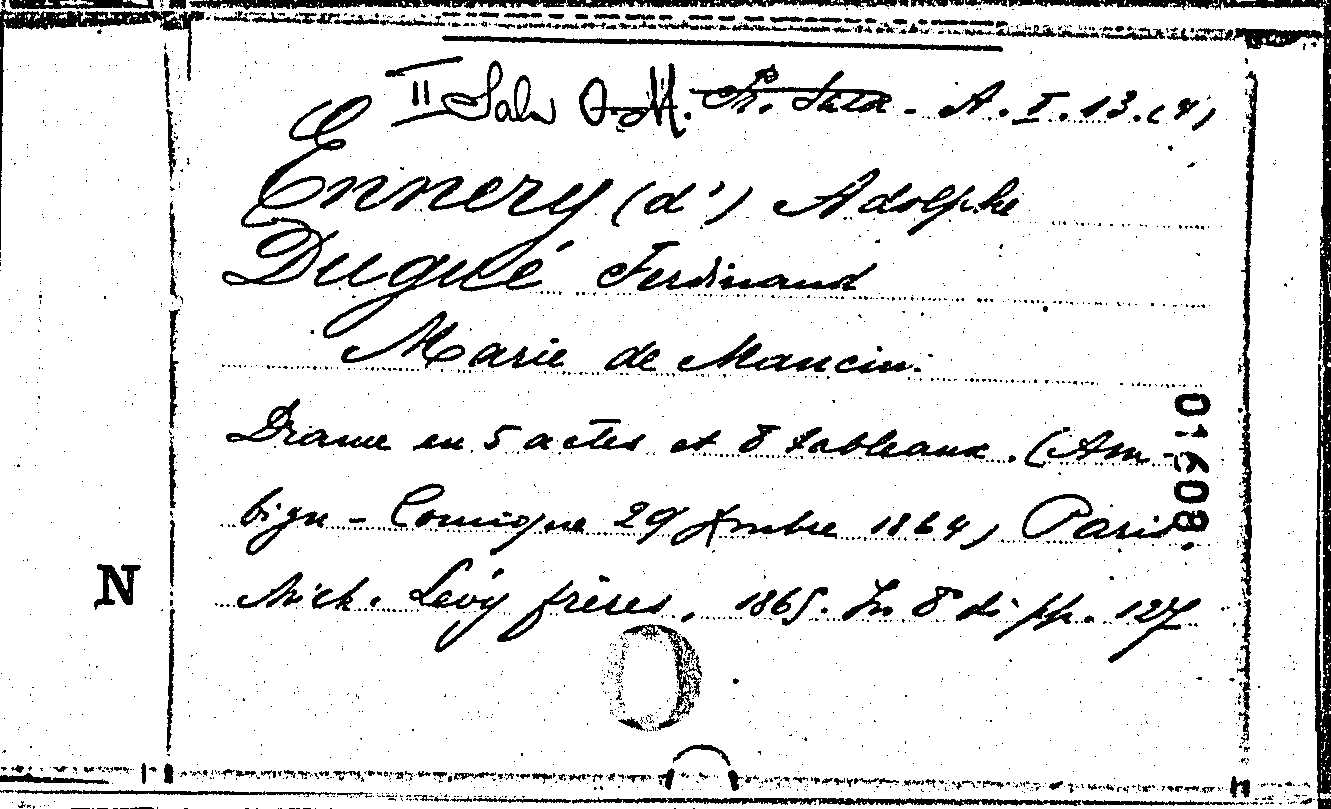 II Sala A. I. 13. (4)
Ennery (d') Adolphe
Dugué Ferdinand
Marie de Mancini
Drame en 5 actes et 8 tableaux. (Am-
bigu-Comique 29 1864) Paris.
Mich. Lévy frères, 1865. In 8° di pp. 127
01608
N